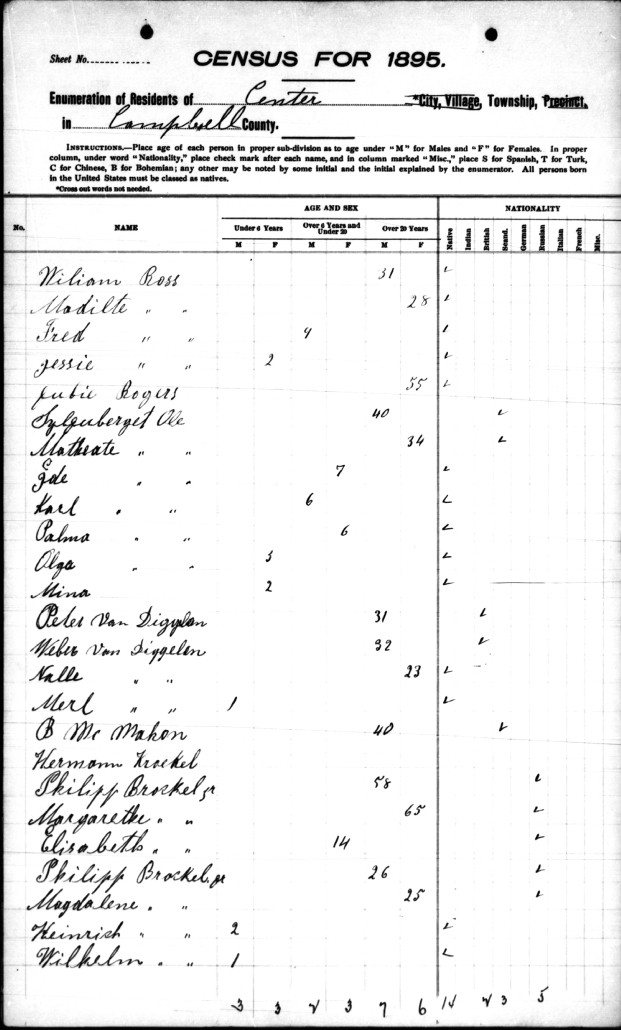 Sheet No.
CENSUS FOR 1895.
Enumeration of Residents of Center *City, Village, Township, Precinct,
in Campbell County.
INSTRUCTIONS.—Place age of each person in proper sub-division as to age under "M" for Males and "F" for Females. In proper
column, under word "Nationality," place check mark after each name, and in column marked "Misc.," place S for Spanish, T for Turk,
C for Chinese, B for Bohemian; any other may be noted by some initial and the initial explained by the enumerator. All persons born
in the United States must be classed as natives.
*Cross out words not needed.
AGE AND SEX NATIONALITY
No. NAME Under 6 Years Over 6 Years and Under 20 Over 20 Years Native Indian British Scand. German Russian Italian French Misc.
M F M F M F
Wiliam Ross 31 ✓
Madilte " " 28 ✓
Fred " " 9 ✓
Jessie " " 2 ✓
Rogers 55 ✓
Ole 40 ✓
" " 34 ✓
Ede " " 7 ✓
Karl " " 6 ✓
Palma " " 6 ✓
Olga " " 3 ✓
Mina 2 ✓
Peter Van Diggelen 31 ✓
Weber Van Diggelen 32 ✓
Nalle " " 23 ✓
Merl " " 1 ✓
B Mc Mahon 40 ✓
Hermann Krockel
Philipp Brockel sr 58 ✓
Margarethe " " 65 ✓
Elisabeth " " 14 ✓
Philipp Brockel, jr 26 ✓
Magdalene " " 25 ✓
Heinrich " " 2 ✓
Wilhelm " " 1 ✓
3 3 2 3 7 6 14 2 3 5